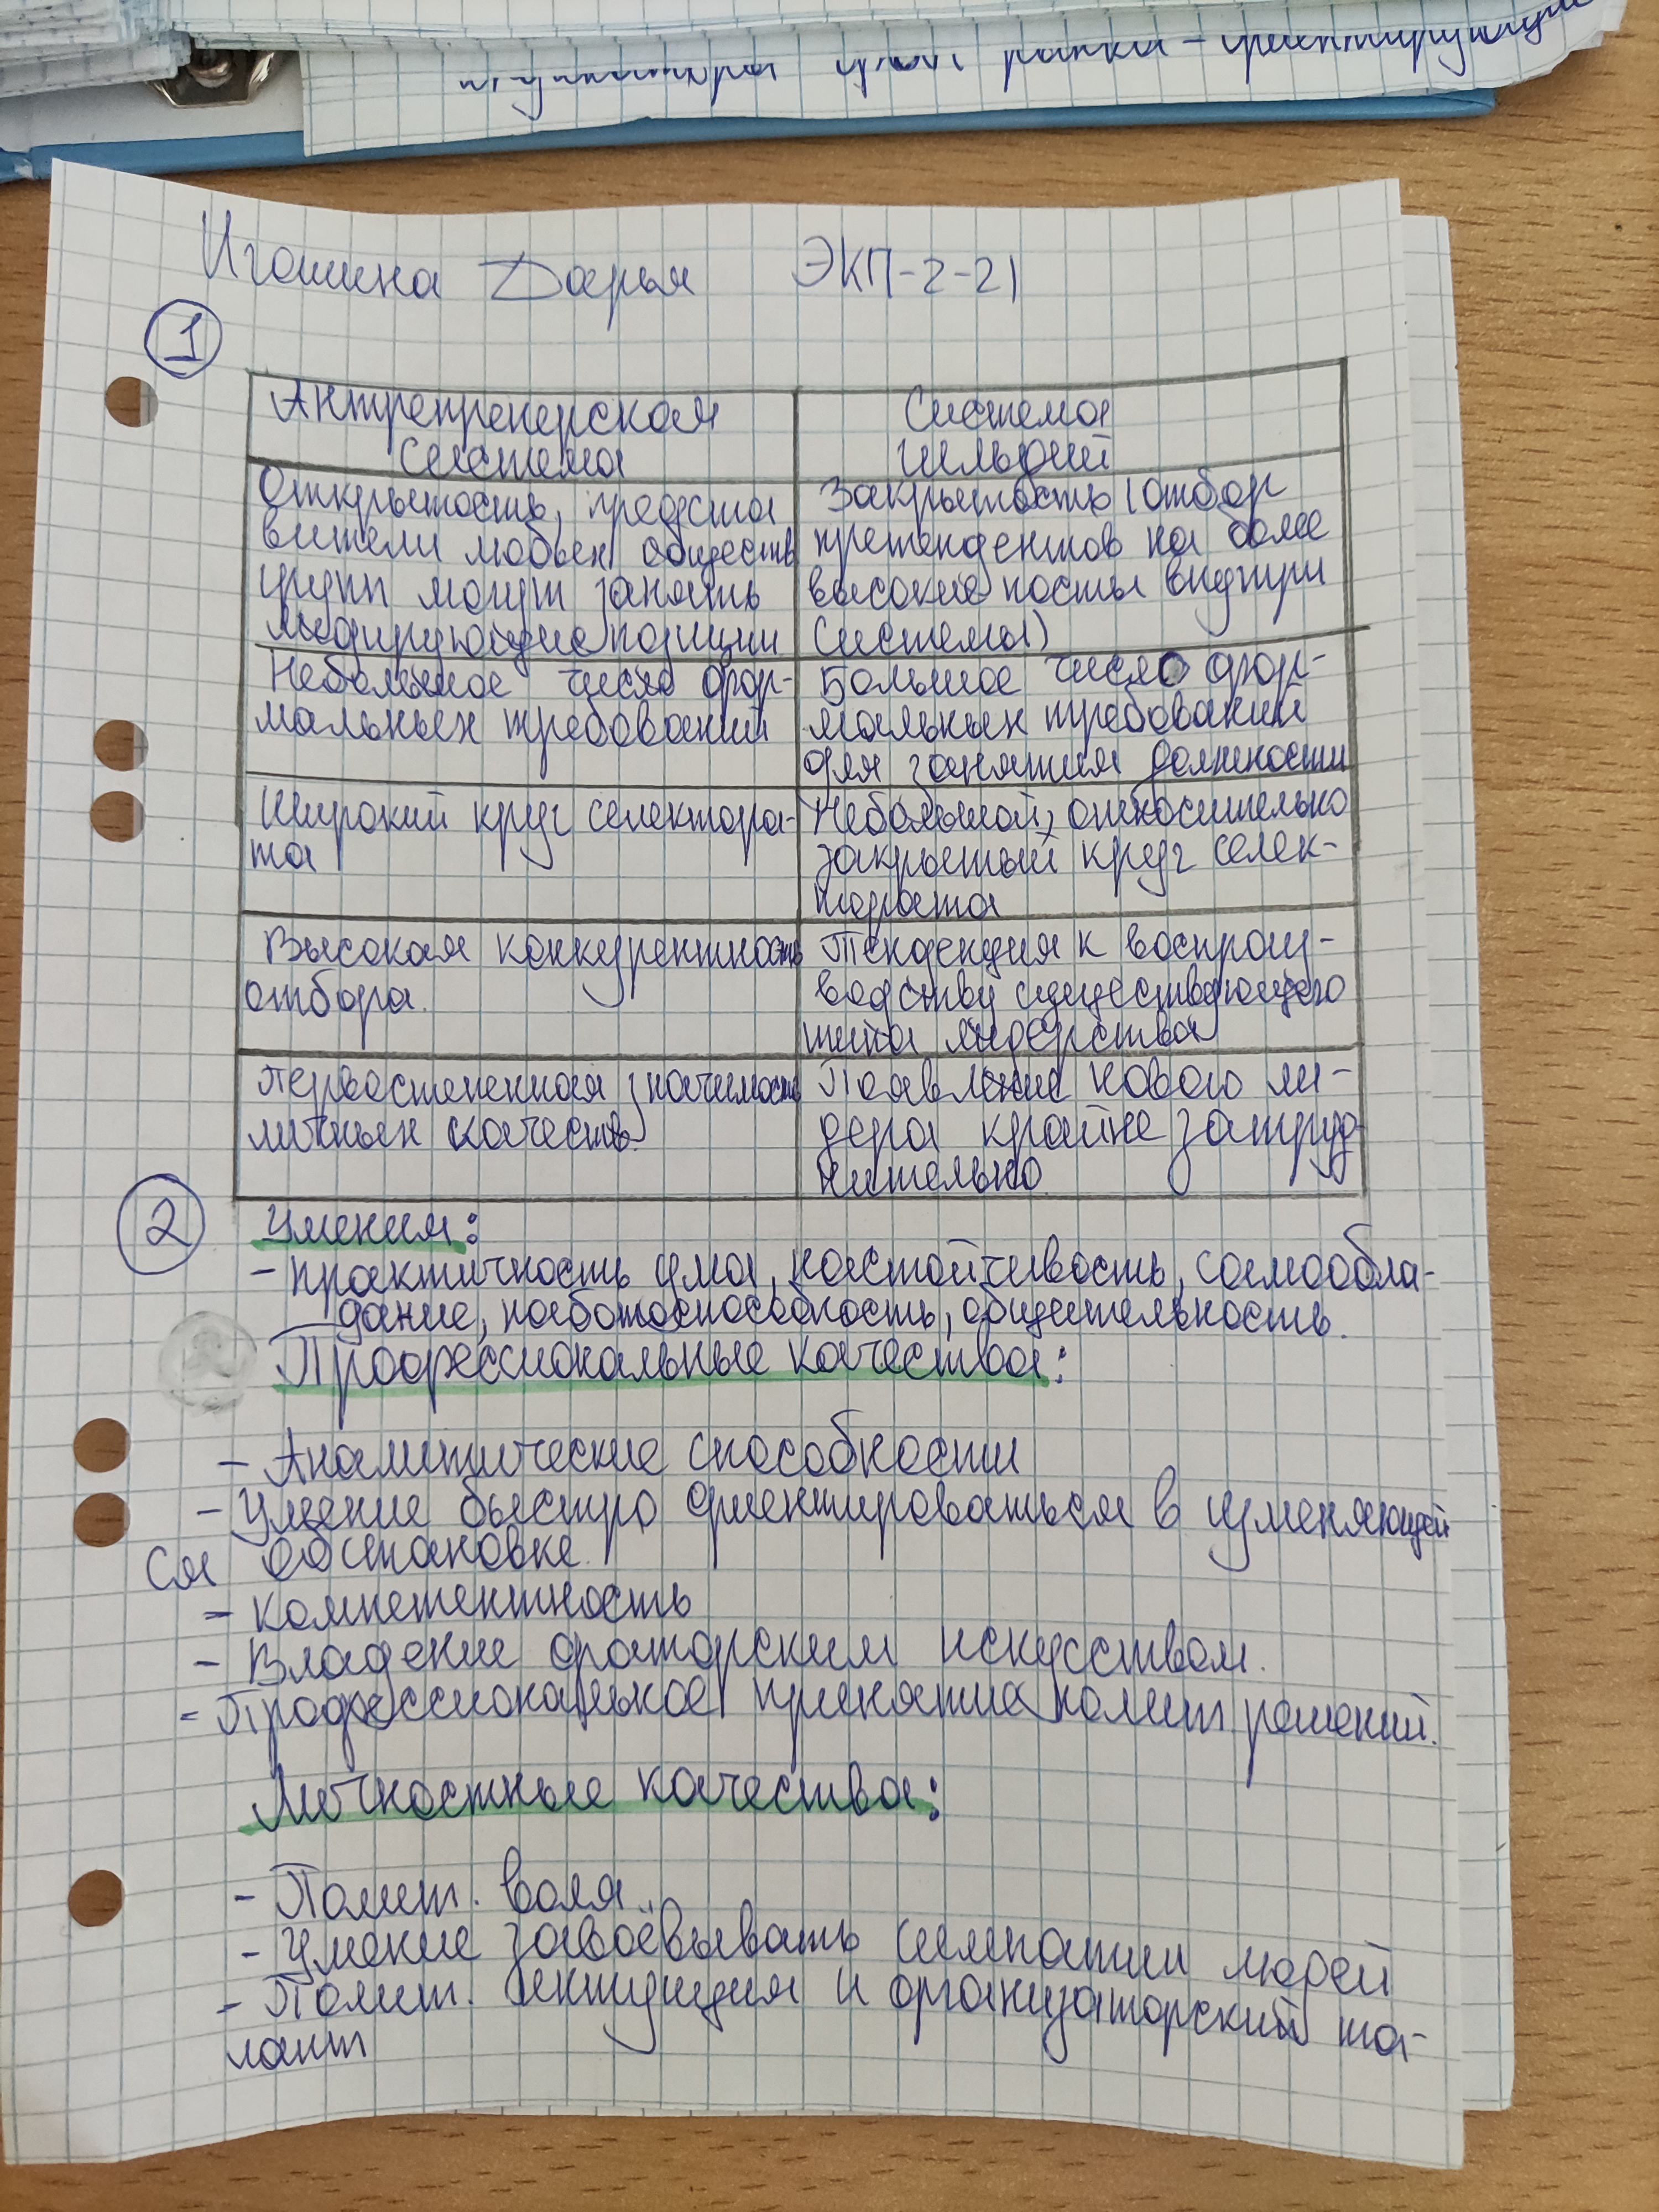 Игошина Дарья ЭКП-2-21
1
Антрепренерская
система
Система
гильдий
Открытость, предста
вители любых обществ
групп могут занять
лидирующие позиции
Закрытость (отбор
претендентов на более
высокие посты внутри
системы)
Небольшое число фор-
мальных требований
Большое число фор-
мальных требований
для занятия должности
Широкий круг селектора-
та
Небольшой, относительно
закрытый круг селек-
тората
Высокая конкурентность
отбора.
Тенденция к воспроиз-
водству существующего
типа лидерства
Первостепенная значимость
личных качеств.
Появление нового ли-
дера крайне затруд
нительно
2
Умения:
- практичность ума, настойчивость, самообла-
дание, работоспособность, общительность.
Профессиональные качества:
- Аналитические способности
- Умение быстро ориентироваться в изменяющей
ся обстановке.
- компетентность
- Владение ораторским искусством.
- Профессиональное принятие полит. решений.
Личностные качества:
- Полит. воля.
- Умение завоёвывать симпатии людей
- Полит. интуиция и организаторский та-
лант